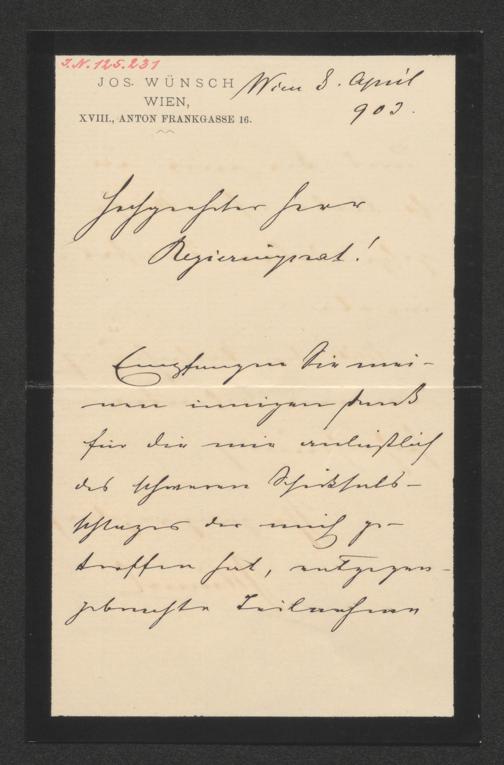 I.N. 125.231
JOS. WÜNSCH
WIEN,
XVIII., ANTON FRANKGASSE 16.
Wien 8. April
903.
Hochgeehrter Herr
Regierungsrat!
Empfangen Sie mei-
nen innigen Dank
für die mir anläßlich
des schweren Schicksals-
schlages der mich ge-
troffen hat, entgegen-
gebrachte Teilnahme